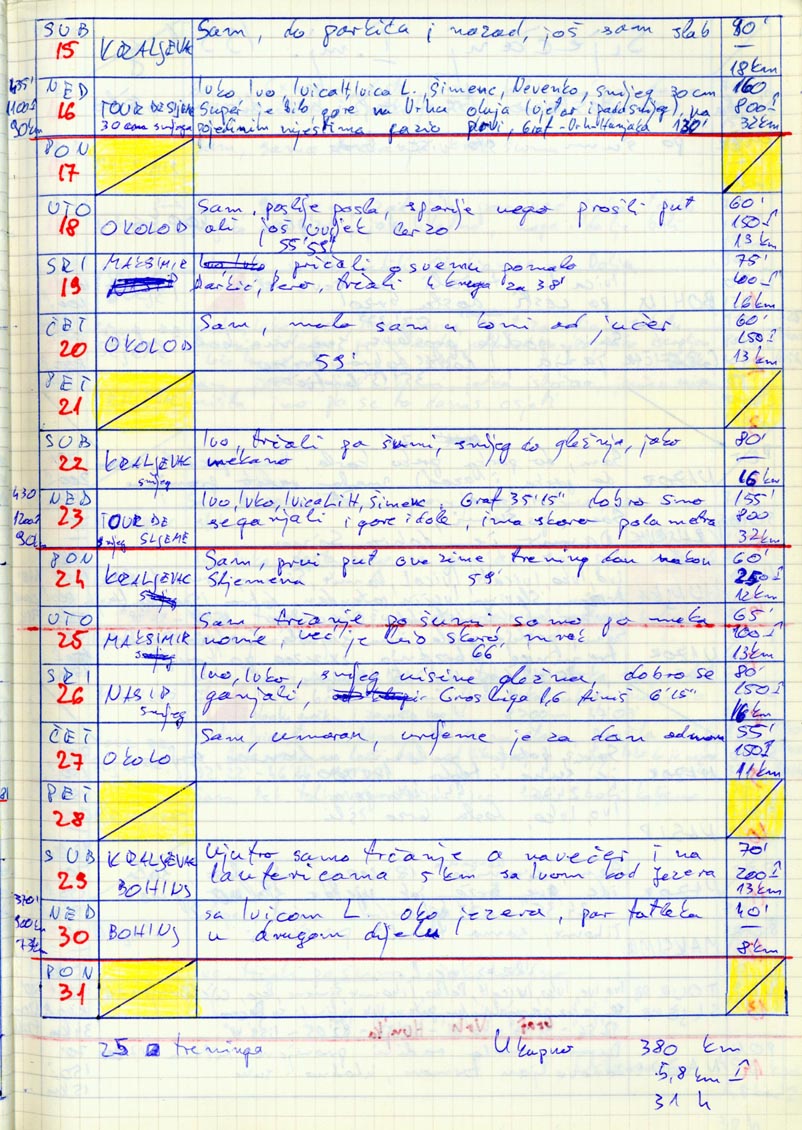 SUB
15
KRALJEVAC
Sam, do parkića i nazad, još sam slab
80'
—
18km
435'
1100
90km
NED
16
TOUR DE SLJEME
30 cma snijega
Ivko, Ivo, Ivica H, Ivica L., Šimenc, Nevenko, snijeg 30 cm
Super je bilo, gore na Vrhu oluja (vjetar i pada snijeg), na
pojedinim mjestima gazio prvi, Graf - Vrh - Hunjka 130'
160
800
32km
PON
17
UTO
18
OKOLO
Sam, poslije posla, sporije nego prošli put
ali još uvijek brzo
55'55"
60'
150
13 km
SRI
19
MAKSIMIR
pričali o svemu pomalo
Parkić, Pero, trčali 4 kruga za 38'
75'
100
16 km
ČET
20
OKOLO
Sam, malo sam u komi od jučer
59'
60'
150
13 km
PET
21
SUB
22
KRALJEVAC
snijeg
Ivo, trčali po šumi, snijeg do gležnja, jako
mekano
80'
—
16 km
430
1200
90km
NED
23
TOUR DE
snijeg SLJEME
Ivo, Ivko, Ivica L i H, Šimenc, Graf 35'15" dobro smo
se ganjali i gore i dole, ima skoro pola metra
155'
800
32km
PON
24
KRALJEVAC
Sam, prvi put ove zime trening dan nakon
Sljemena 59'
60'
250
12km
UTO
25
MAKSIMIR
Sam trčanje po šumi samo po
već je bio skoro mrak
66'
65'
100
13km
SRI
26
NASIP
snijeg
Ivo, Ivko, snijeg visine gležnja, dobro se
ganjali, Gros liga 1,6 finiš 6'15"
80'
150
16km
ČET
27
OKOLO
Sam, umoran, vrijeme je za dan odmora
55'
150
11km
PET
28
SUB
29
KRALJEVAC
BOHINJ
Ujutro samo trčanje a navečer i na
laufericama 5 km sa Ivom kod jezera
70'
200
13km
370'
900
73km
NED
30
BOHINJ
sa Ivicom L. oko jezera, par fatleka
u drugom dijelu
40'
—
8km
PON
31
25 treninga
Ukupno
380 km
5,8 km
31 h